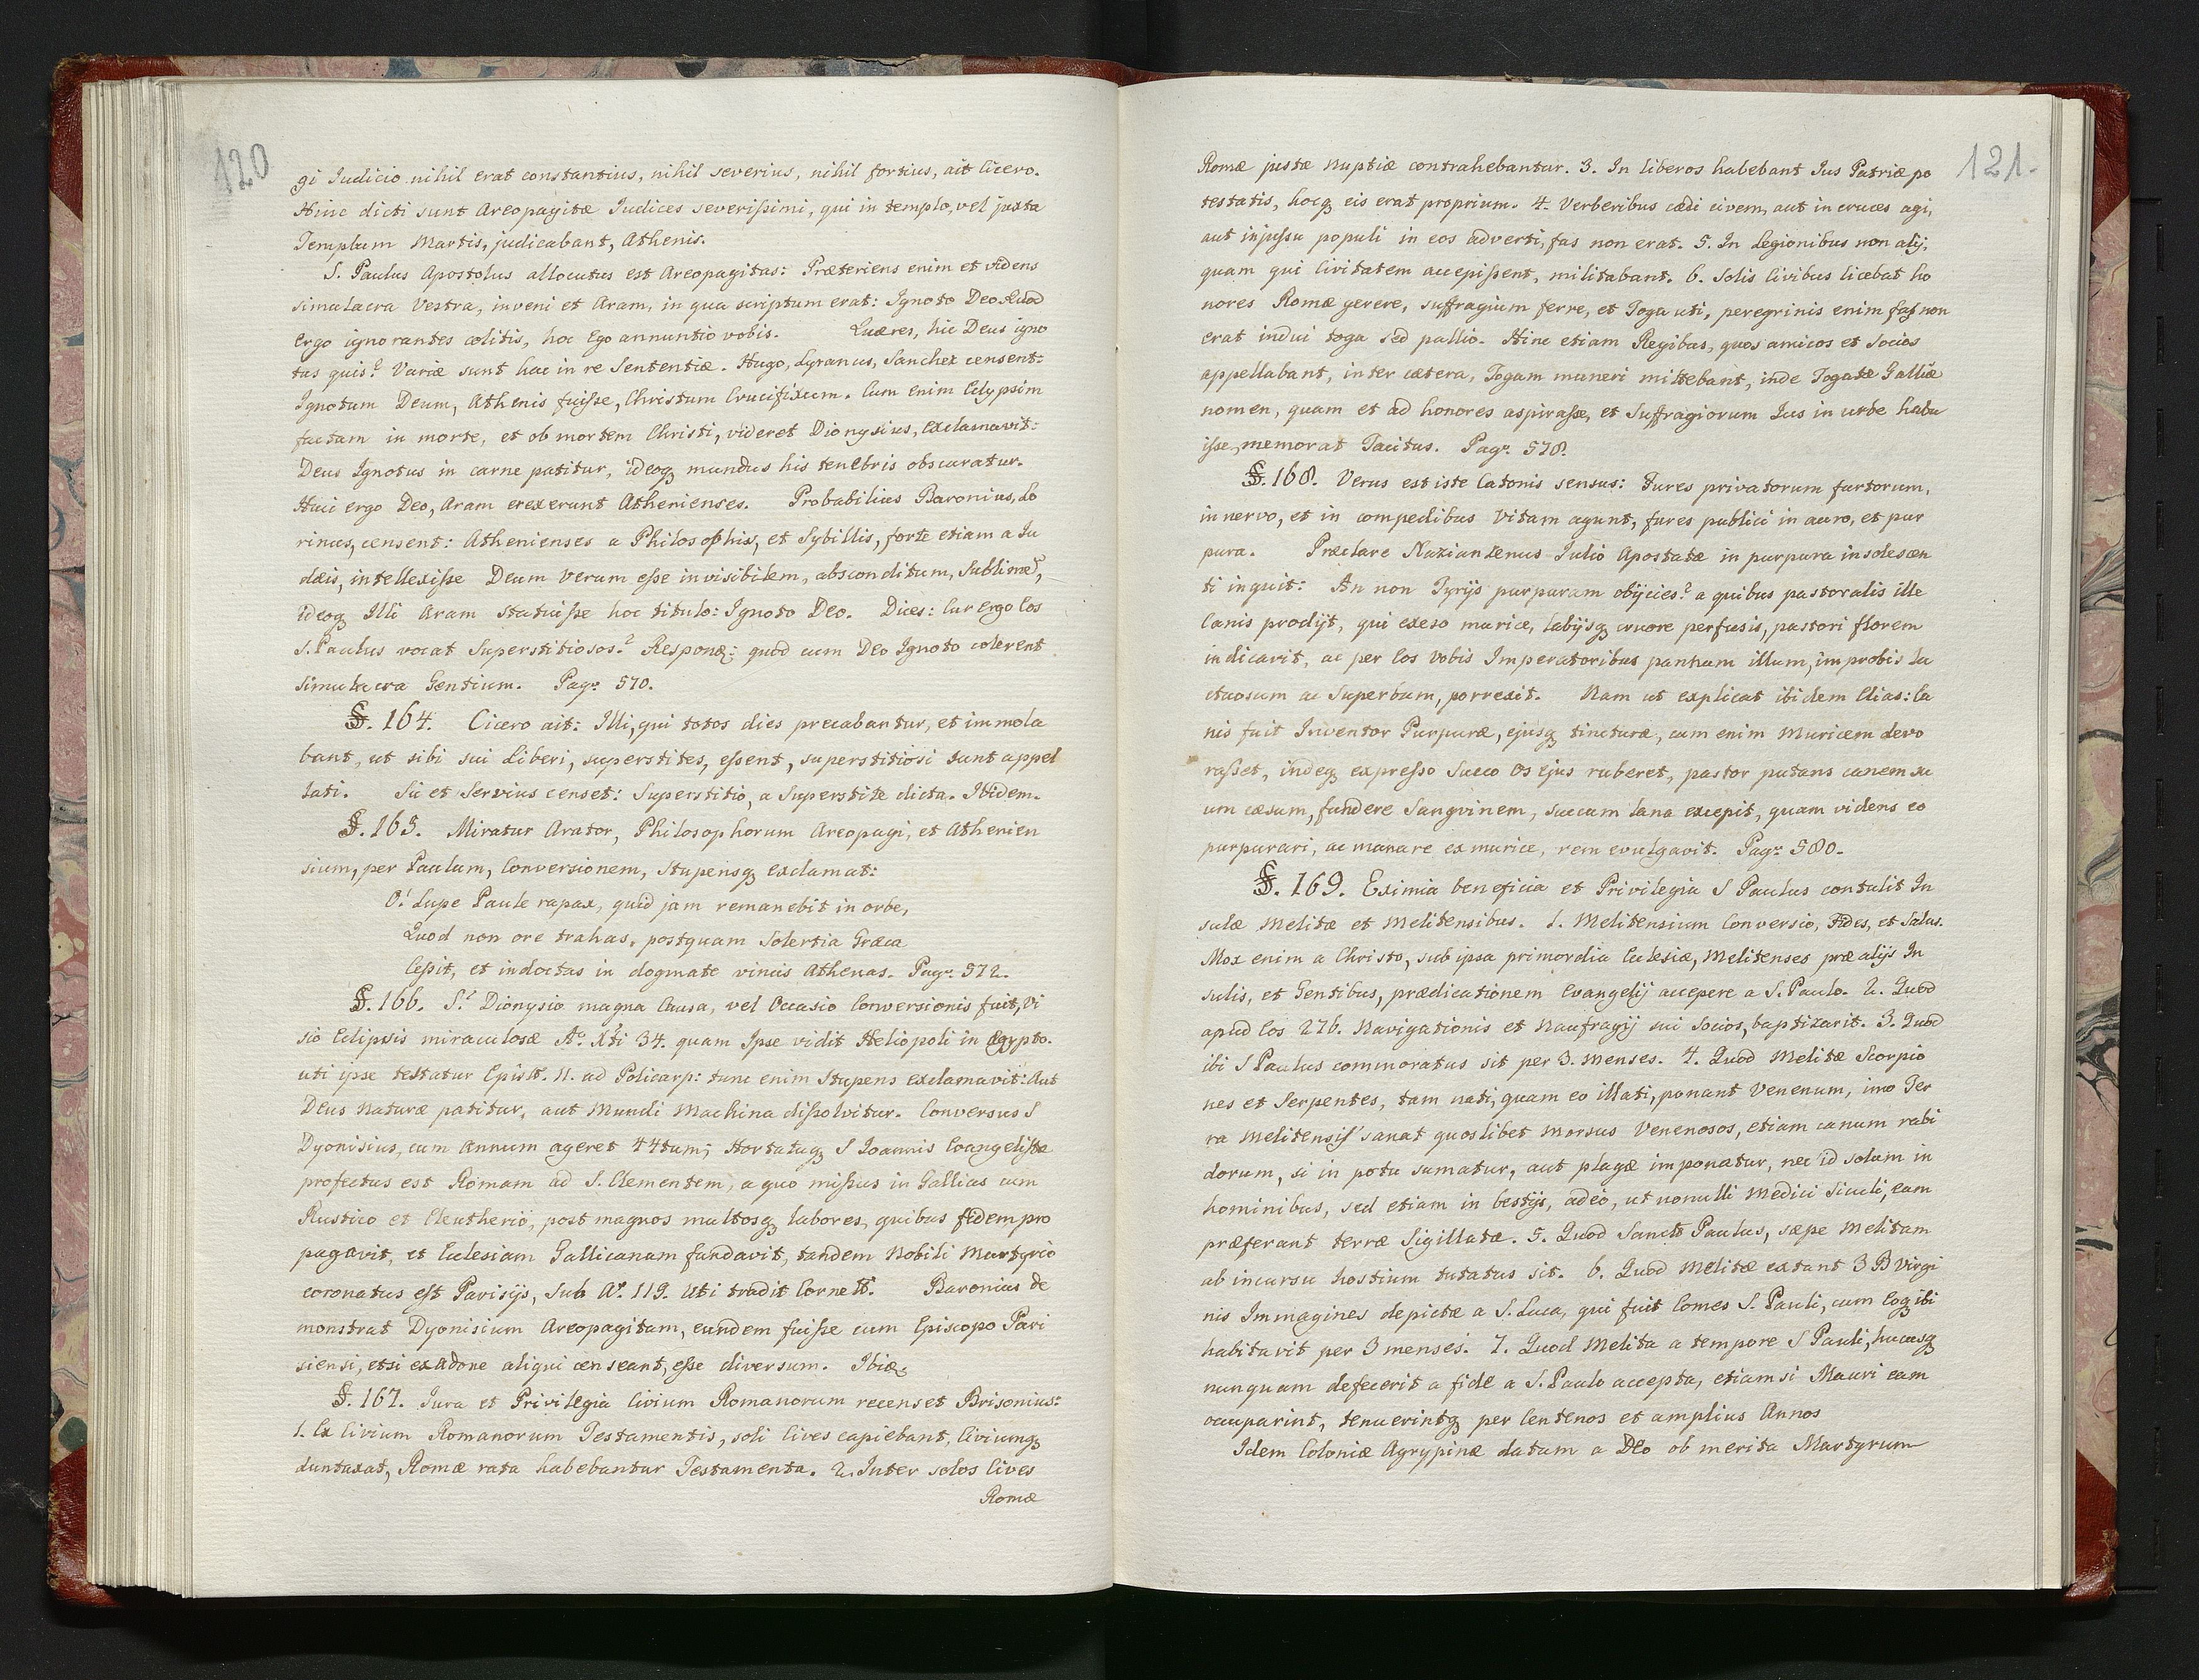 120
gi Iudicio nihil erat constantius, nihil severius, nihil fortius, ait Cicero.
Hinc dicti sunt Areopagitæ Iudices severissimi, qui in templo, vel juxta
Templum Martis, judicabant, Athenis.
S. Paulus Apostolus allocutus est Areopagitas: Præteriens enim et videns
simulacra Vestra, inveni et Aram, in qua scriptum erat: Ignoto Deo. Quod
ergo ignorantes colitis, hoc Ego annuntio vobis. Quæres, hic Deus igno
tus quis? Variæ sunt hac in re Sententiæ. Hugo, Lyranus, Sanchex censent:
Ignotum Deum, Athenis fuisse, Christum Crucifixum. Cum enim Eclypsim
factam in morte, et ob mortem Christi, videret Dionysius, Exclamavit:
Deus Ignotus in carne patitur, ideoq mundus his tenebris obscuratur.
Huic ergo Deo, Aram erexerunt Athenienses. Probabilius Baronius, Lo
rinus, censent: Athenienses a Philosophis, et Sybillis, forte etiam a Iu
dæis, intellexisse Deum Verum esse invisibilem, absconditum, Sublimem,
ideoq Illi Aram statuisse hoc titulo: Ignoto Deo. Dices: Cur ergo Eos
S. Paulus vocat Superstitiosos? Respond: quod cum Deo Ignoto colerent
simulacra Gentium. Pag. 570.
§. 164. Cicero ait: Illi, qui totos dies precabantur, et immola
bant, ut sibi sui Liberi, superstites, essent, superstitiosi sunt appel
lati. Sic et Servius censet: Superstitio, a Superstite dicta. Ibidem.
§. 165. Miratur Arator, Philosophorum Areopagi, et Athenien
sium, per Paulum, Conversionem, stupensq exclamat:
O! Lupe Paule rapax, quid jam remanebit in orbe,
Quod non ore trahas, postquam Solertia Græca
Cessit, et indoctas in dogmate vincis Athenas. Pag. 572.
§. 166. S. Dionysio magna Causa, vel Occasio Conversionis fuit, Vi
sio Eclipsis miraculosæ Ao. Xti 34. quam Ipse vidit Heliopoli in Egypto.
uti ipse testatur Epist. 11. ad Policarp: tunc enim Stupens exclamavit: Aut
Deus Naturæ patitur, aut Mundi Machina dissolvitur. Conversus S
Dyonisius, cum Annum ageret 44tum; Hortatuq S Ioannis Evangelistæ
profectus est Romam ad S. Clementem, a quo missus in Gallias cum
Rustico et Eleutherio, post magnos multosq labores, quibus fidem pro
pagavit, et Ecclesiam Gallicanam fundavit, tandem Nobili Martyrio
coronatus est Parisijs, sub Ao. 119. Uti tradit Cornell. Baronius de
monstrat Dyonisium Areopagitam, eundem fuisse cum Episcopo Pari
siensi, etsi ex Adone aliqui censeant, esse diversum. Ibid.
§. 167. Iura et Privilegia Civium Romanorum recenset Brisonius:
1. Ex Civium Romanorum Testamentis, soli Cives capiebant, Civiumq
duntaxat, Romæ rata habebantur Testamenta. 2. Inter solos Cives
Romæ
121.
Romæ justæ Nuptiæ contrahebantur. 3. In liberos habebant Ius Patriæ po
testatis, hocq eis erat proprium. 4. Verberibus cædi civem, aut in cruces agi,
aut injussu populi in eos adverti, fas non erat. 5. In Legionibus non alij,
quam qui Civitatem accepissent, militabant. 6. Solis Civibus licebat ho
nores Romæ gerere, suffragium ferre, et Toga uti, peregrinis enim fas non
erat indui toga sed pallio. Hinc etiam Regibus, quos amicos et Socios
appellabant, inter cætera, Togam muneri mittebant, inde Togatæ Galliæ
nomen, quam et ad honores aspirasse, et Suffragiorum Ius in urbe habu
isse, memorat Tacitus. Pag. 578.
§. 168. Verus est iste Catonis sensus: Fures privatorum furtorum,
in nervo, et in compedibus Vitam agunt, fures publici in auro, et pur
pura. Præclare Nazianzenus Iulio Apostatæ in purpura insolescen
ti inquit: An non Tyrijs purpuram objicies? a quibus pastoralis ille
Canis prodijt, qui exeso murice, labijsq cruore perfusis, pastori florem
indicavit, ac per Eos Vobis Imperatoribus pannum illum, improbis lu
ctuosum ac Superbum, porrexit. Nam ut explicat ibidem Elias: Ca
nis fuit Inventor Purpuræ, ejusq tincturæ, cum enim Muricem devo
rasset, indeq expresso Succo Os ejus ruberet, pastor putans canem su
um cæsum, fundere Sangvinem, succum lana excepit, quam videns eo
purpurari, ac manare ex murice, rem evulgavit. Pag. 580.
§. 169. Eximia beneficia et Privilegia S Paulus contulit In
sulæ Melitæ et Melitensibus. 1. Melitensium Conversio, Fides, et Salus.
Mox enim a Christo, sub ipsa primordia Ecclesiæ, Melitenses præ alijs In
sulis, et Gentibus, prædicationem Evangelij accepere a S. Paulo. 2. Quod
apud Eos 276. Navigationis et Naufragij sui Socios, baptizarit. 3. Quod
ibi S Paulus commoratus sit per 3. Menses. 4. Quod Melitæ Scorpio
nes et Serpentes, tam nati, quam eo illati, ponant Venenum, imo Ter
ra Melitensis sanat quoslibet Morsus Venenosos, etiam canum rabi
dorum, si in potu sumatur, aut plagæ imponatur, nec id solum in
hominibus, sed etiam in bestijs, adeo, ut nonulli Medici Siculi, eam
præferant terræ Sigillatæ. 5. Quod Sancte Paulus, sæpe Melitam
ab incursu hostium tutatus sit. 6. Quod Melitæ extant 3 B Virgi
nis Immagines depictæ a S. Luca, qui fuit Comes S. Pauli, cum Eoq ibi
habitavit per 3 menses. 7. Quod Melita a tempore S Pauli, hucusq
nunquam defecerit a fide a S. Paulo accepta, etiamsi Mauri eam
occuparint, tenuerintq per Centenos et amplius Annos
Idem Coloniæ Agrypinæ datum a Deo ob merita Martyrum